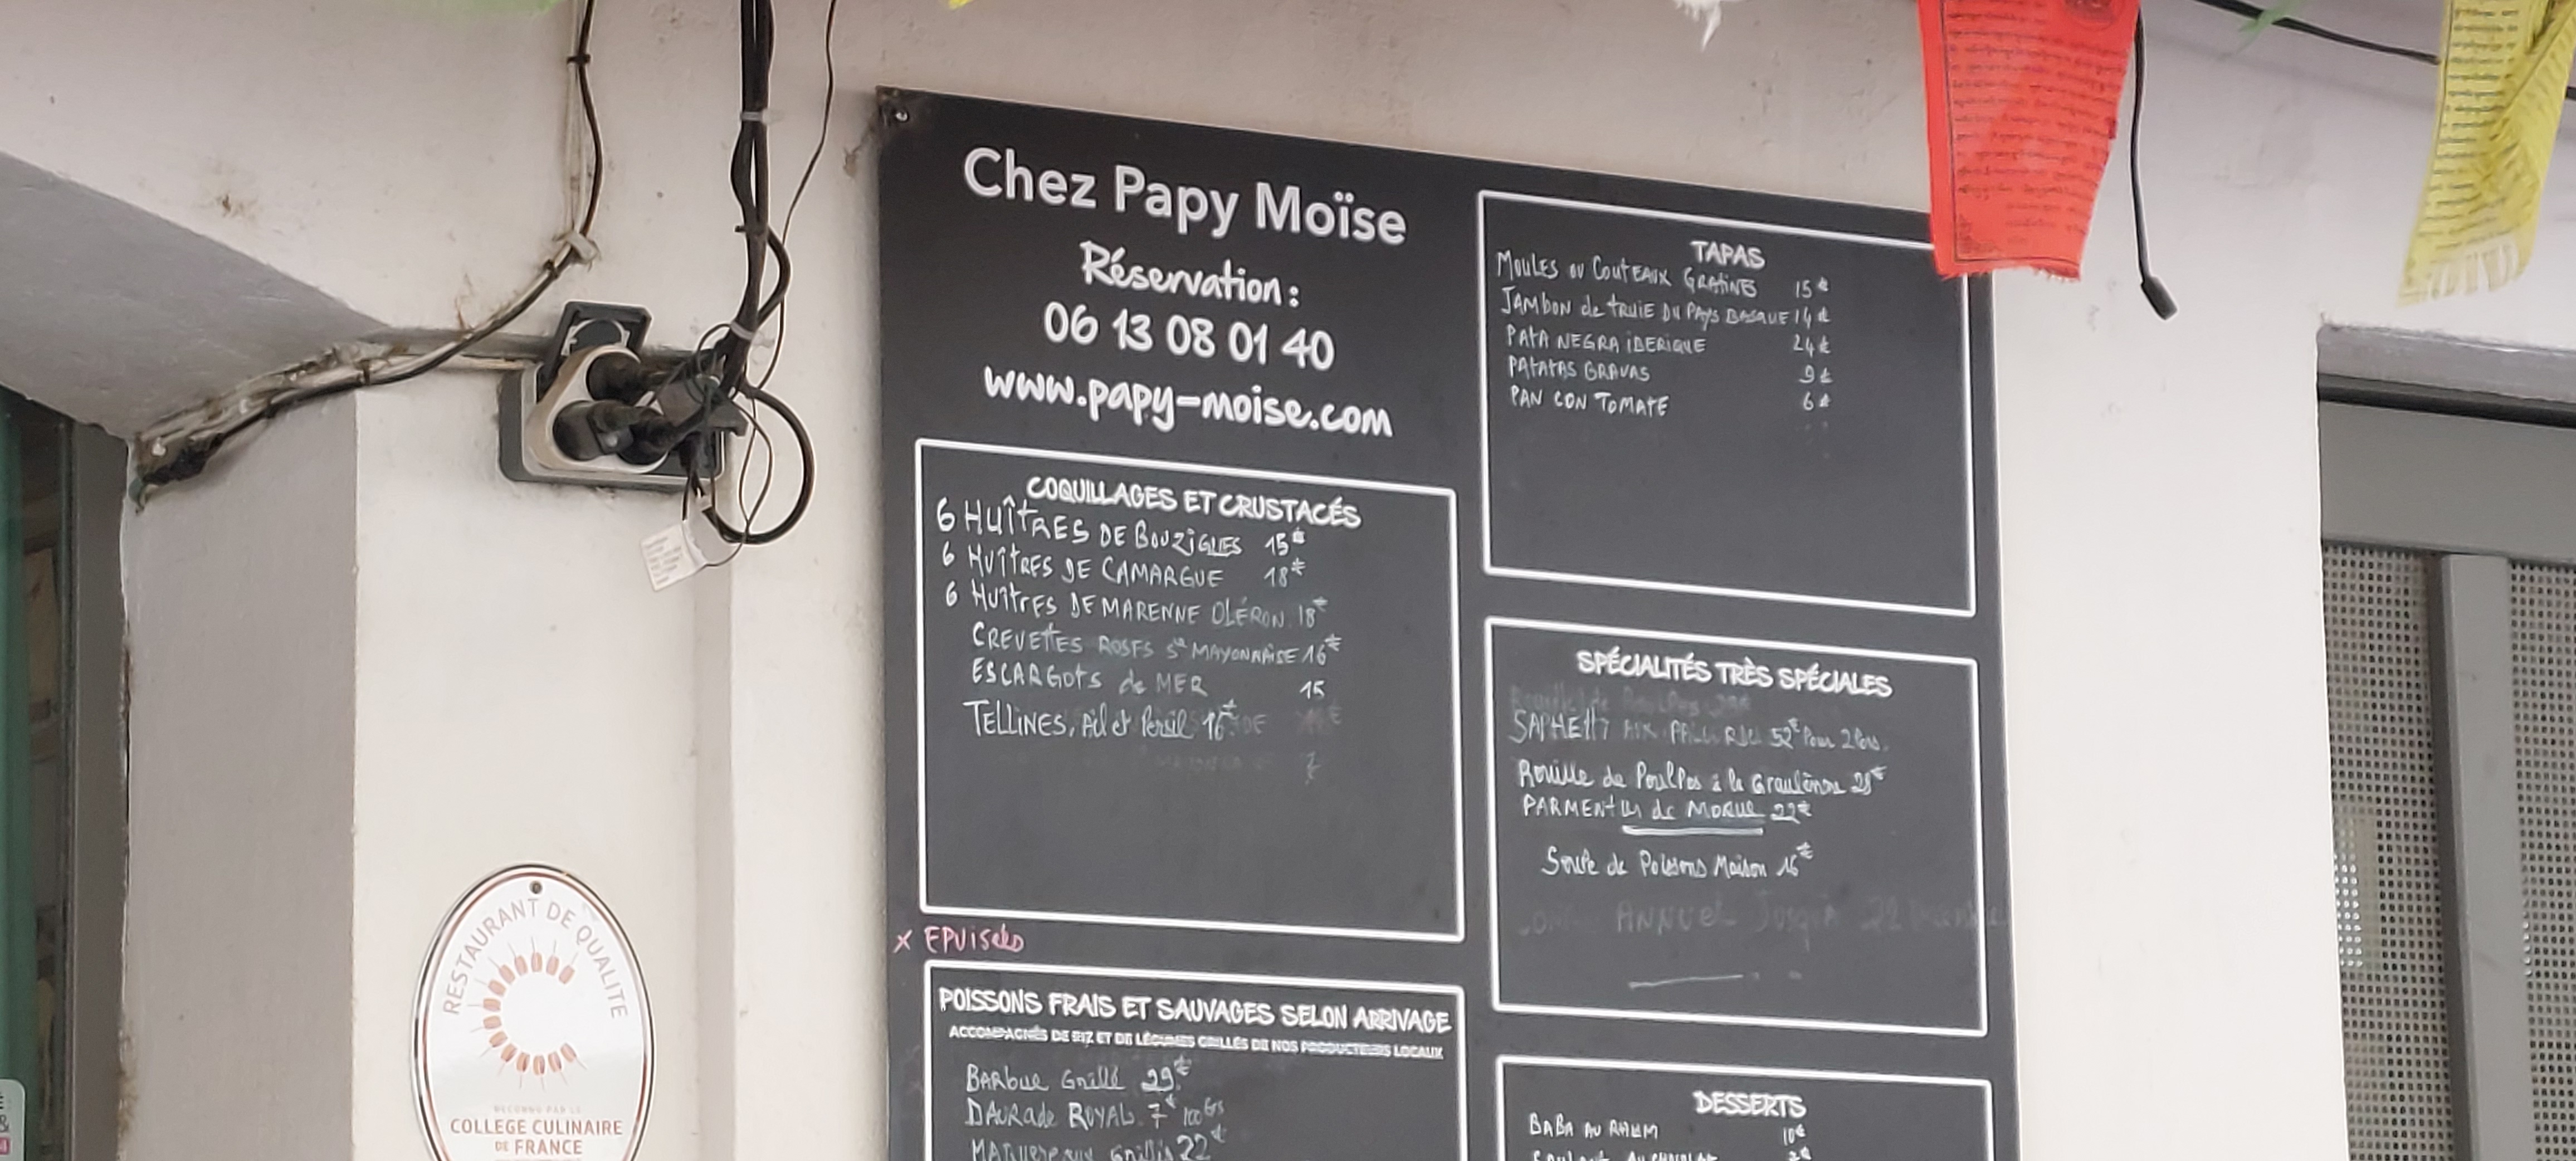 Chez Papy Moïse
Réservation :
06 13 08 01 40
www.papy-moise.com
COQUILLAGES ET CRUSTACÉS
6 HUÎTRES DE BOUZIGUES 15€
6 HUÎTRES DE CAMARGUE 18€
6 HUÎTRES DE MARENNE OLÉRON 18€
CREVETTES ROSES Sce MAYONNAISE 16€
ESCARGOTS de MER 15
TELLINES, Ail et Persil 16€
X EPUISées
POISSONS FRAIS ET SAUVAGES SELON ARRIVAGE
ACCOMPAGNÉS DE RIZ ET DE LÉGUMES GRILLÉS DE NOS PRODUCTEURS LOCAUX
BARbue Grillé 29€
DAURade ROYAL 7€ 100 Grs
MAquereaux Grillés 22€
TAPAS
MOULES OU COUTEAUX GRATINÉS 15€
JAMBON de TRUIE DU PAYS BASQUE 14€
PATA NEGRA IBERIQUE 24€
PATATAS BRAVAS 9€
PAN CON TOMATE 6€
SPÉCIALITÉS TRÈS SPÉCIALES
SAPHETTI AUX 52€ Pour 2 Pers.
Rouille de Poulpes à la Graulenne 28€
PARMENTIER de MORUE 22€
Soupe de Poissons Maison 16€
ANNUEL Jusqu'à 22
DESSERTS
BABA AU RHUM 10€
RESTAURANT DE QUALITÉ
RECONNU PAR LE
COLLEGE CULINAIRE
DE FRANCE